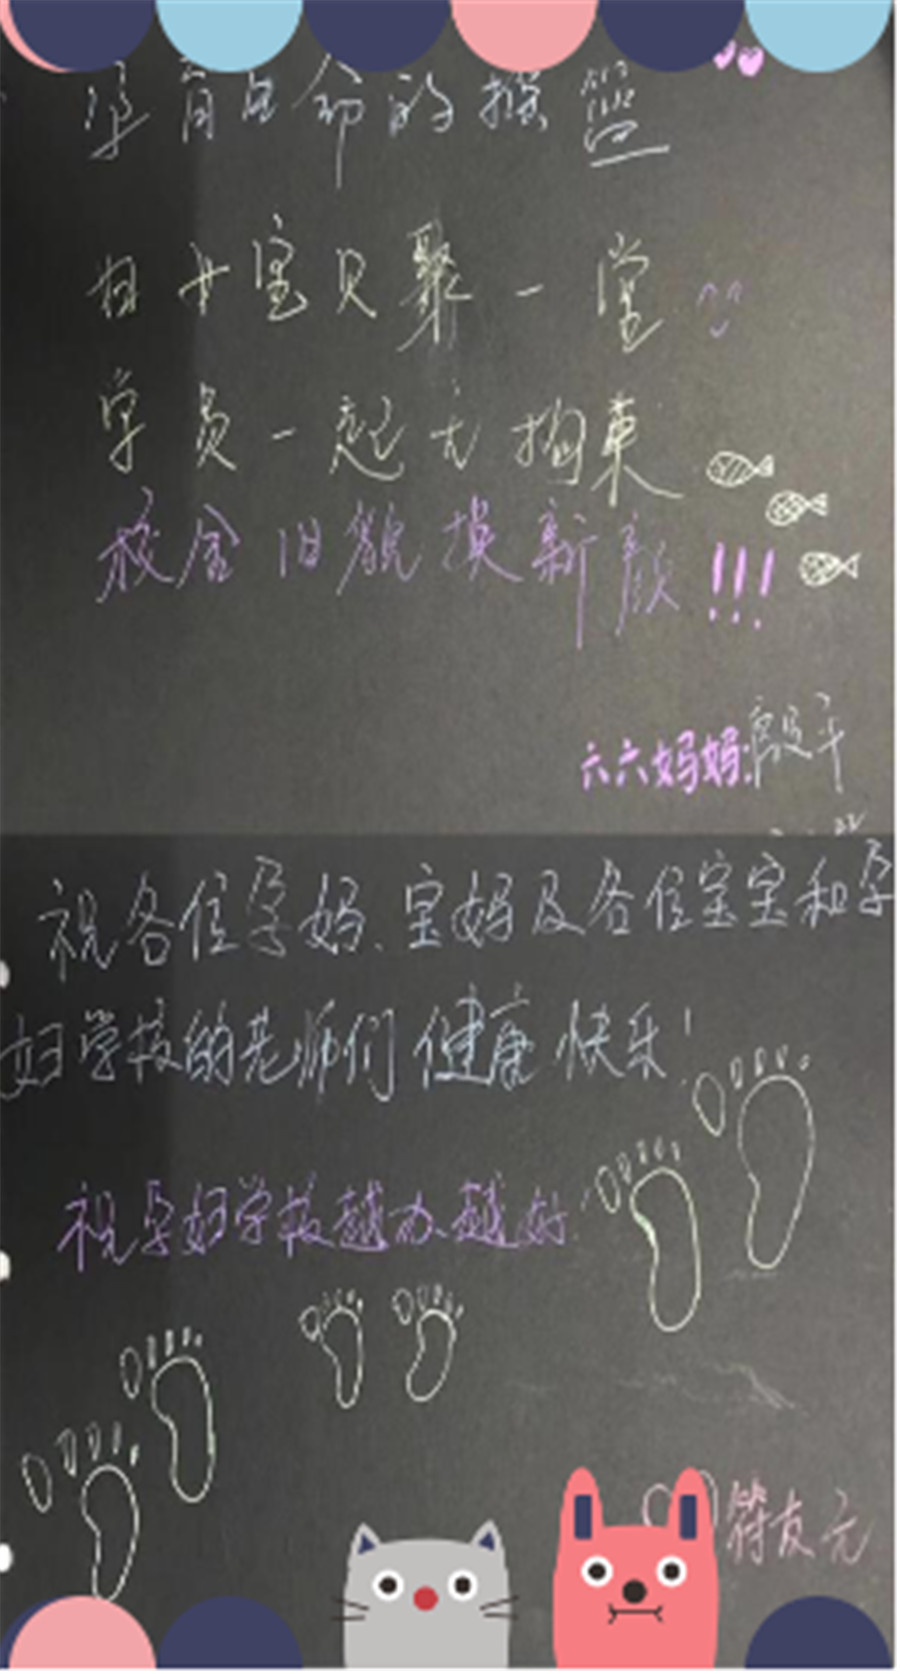 孕育生命的摇篮
妇女宝贝聚一堂
学员一起无拘束
校舍旧貌换新颜!!!
六六妈妈:
祝各位孕妈、宝妈及各位宝宝和孕
妇学校的老师们健康快乐!
祝孕妇学校越办越好!
符友元